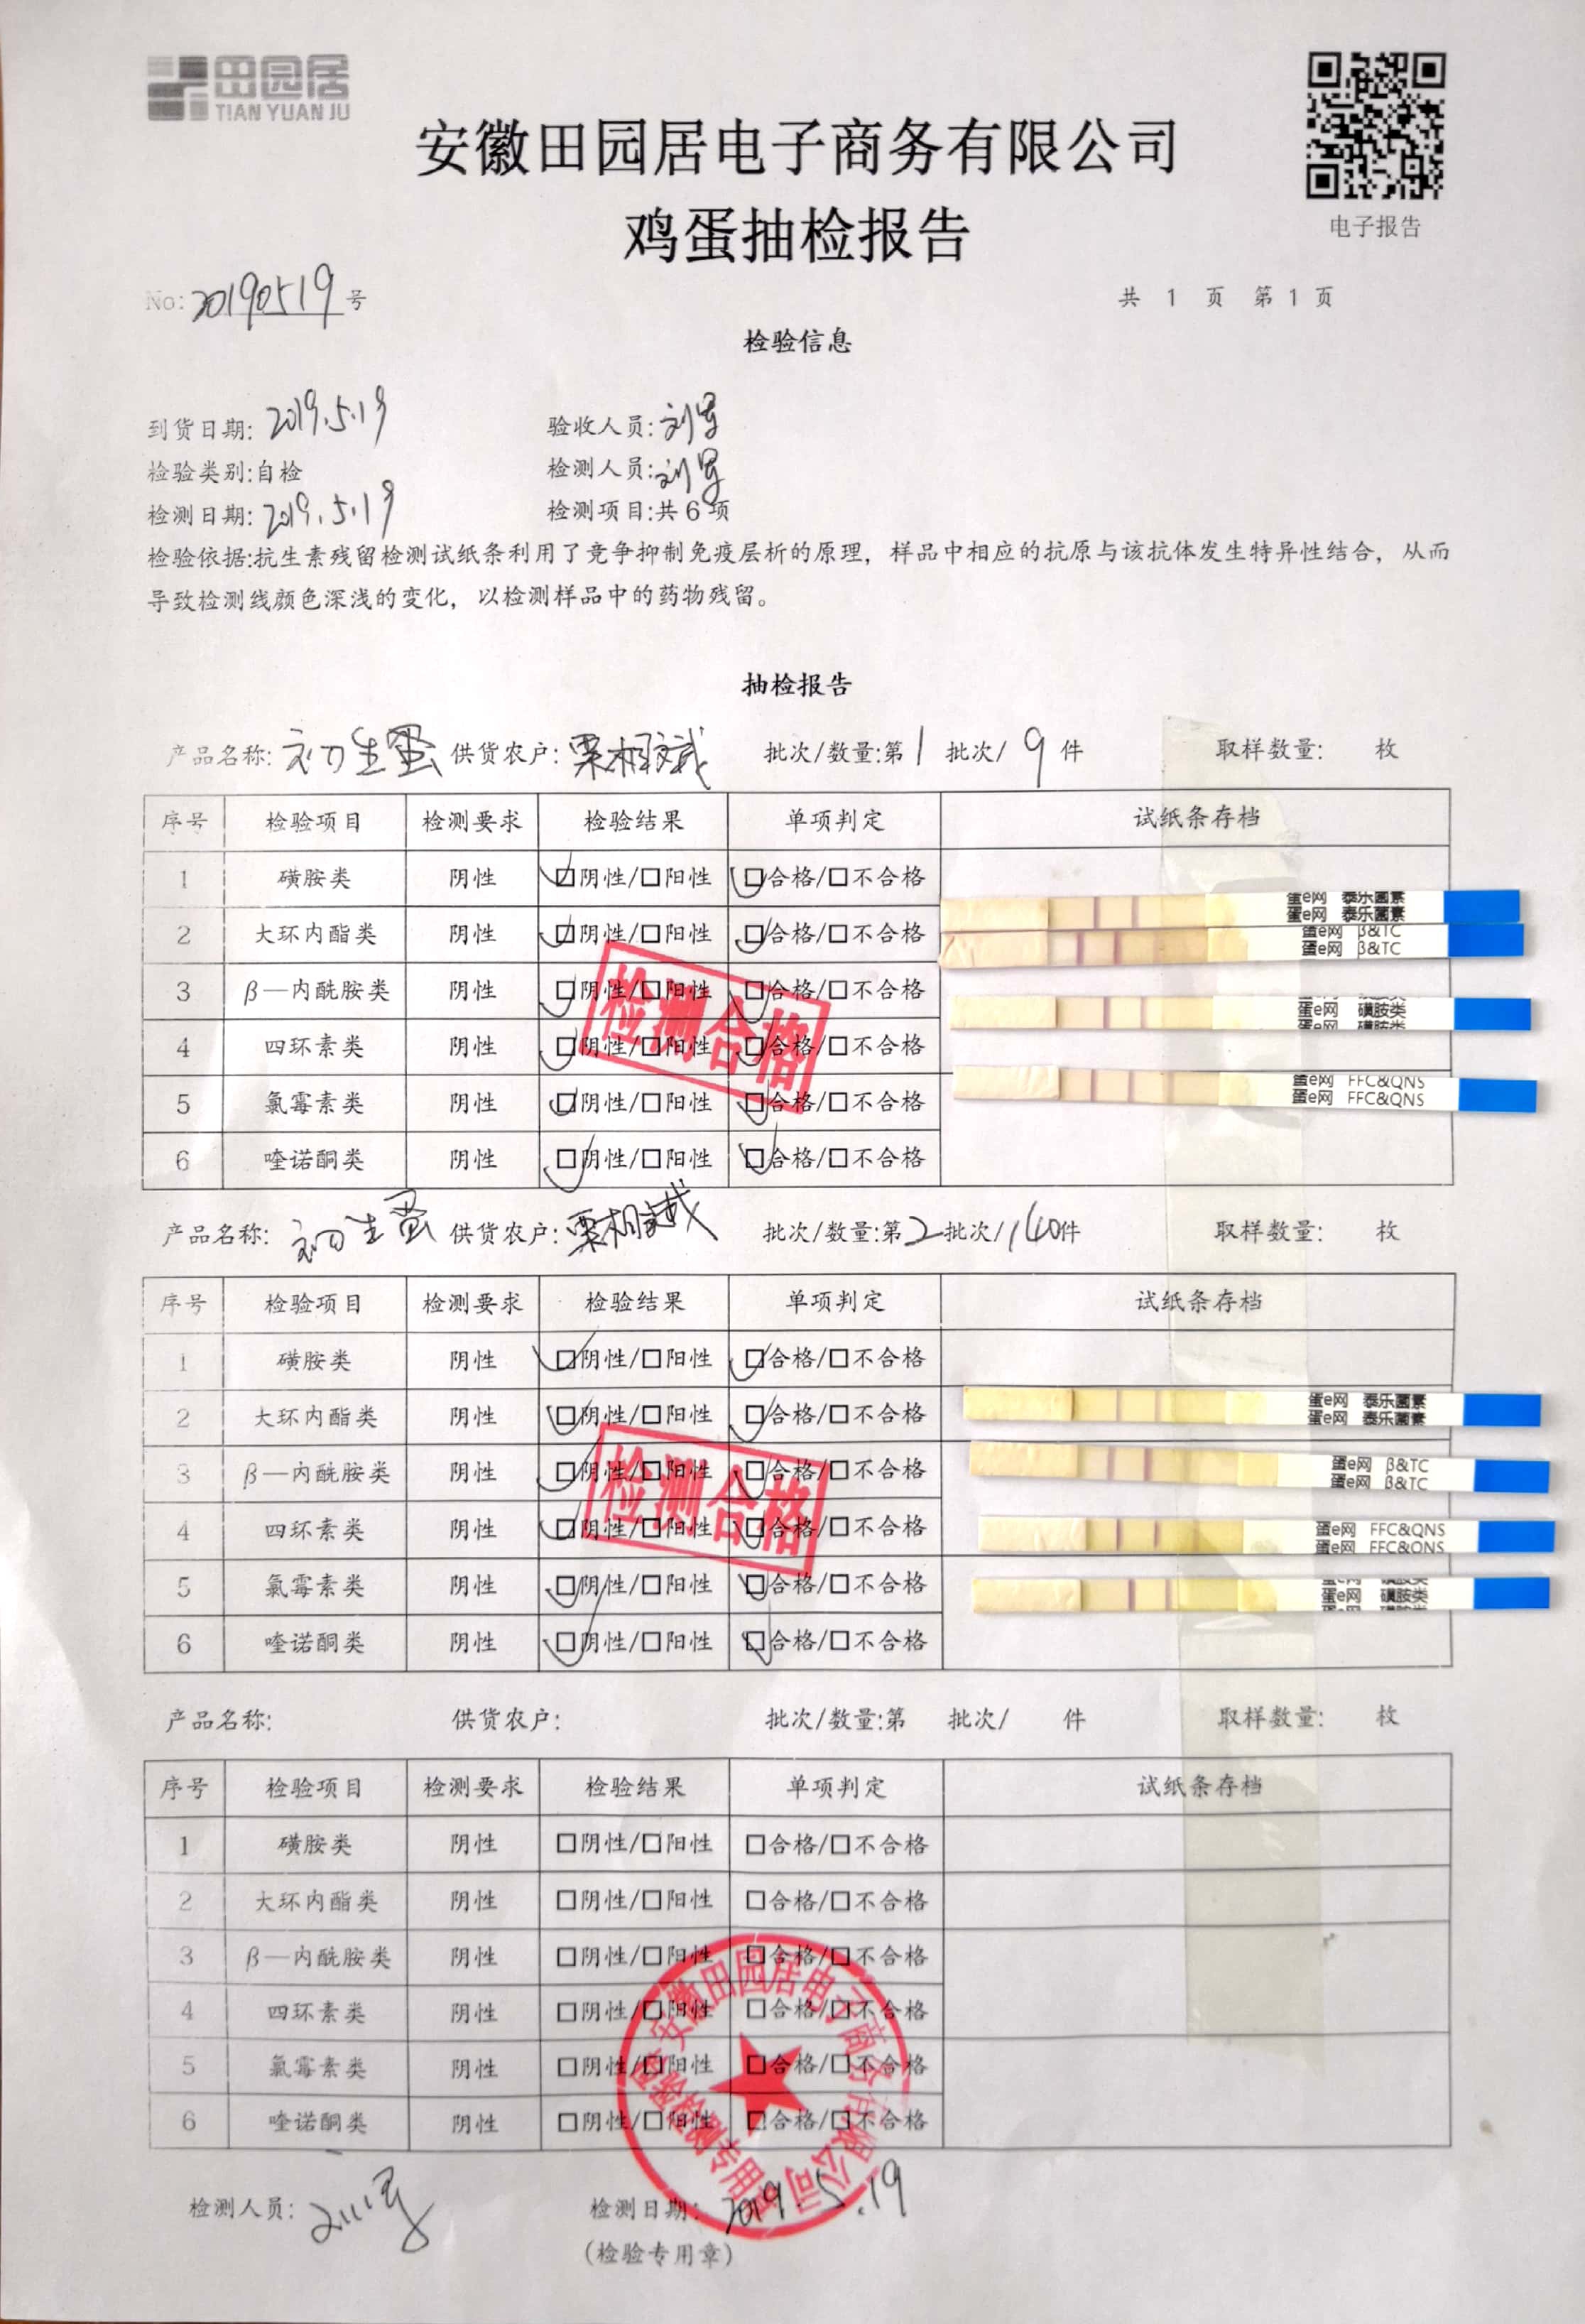 田园居
TIAN YUAN JU
安徽田园居电子商务有限公司
鸡蛋抽检报告
电子报告
No: 20190519 号
共 1 页 第 1 页
检验信息
到货日期: 2019.5.19 验收人员: 刘军
检验类别:自检 检测人员: 刘军
检测日期: 2019.5.19 检测项目:共 6 项
检验依据:抗生素残留检测试纸条利用了竞争抑制免疫层析的原理，样品中相应的抗原与该抗体发生特异性结合，从而
导致检测线颜色深浅的变化，以检测样品中的药物残留。
抽检报告
产品名称: 初生蛋 供货农户: 栗相斌 批次/数量:第 1 批次/ 9 件 取样数量: 枚
序号 检验项目 检测要求 检验结果 单项判定 试纸条存档
1 磺胺类 阴性 ☑阴性/□阳性 ☑合格/□不合格
2 大环内酯类 阴性 ☑阴性/□阳性 ☑合格/□不合格
3 β—内酰胺类 阴性 ☑阴性/□阳性 ☑合格/□不合格
4 四环素类 阴性 ☑阴性/□阳性 ☑合格/□不合格
5 氯霉素类 阴性 ☑阴性/□阳性 ☑合格/□不合格
6 喹诺酮类 阴性 ☑阴性/□阳性 ☑合格/□不合格
检测合格
蛋e网 泰乐菌素
蛋e网 泰乐菌素
蛋e网 β&TC
蛋e网 β&TC
蛋e网 磺胺类
蛋e网 磺胺类
蛋e网 FFC&QNS
蛋e网 FFC&QNS
产品名称: 初生蛋 供货农户: 栗相斌 批次/数量:第 2 批次/ 140 件 取样数量: 枚
序号 检验项目 检测要求 检验结果 单项判定 试纸条存档
1 磺胺类 阴性 ☑阴性/□阳性 ☑合格/□不合格
2 大环内酯类 阴性 ☑阴性/□阳性 ☑合格/□不合格
3 β—内酰胺类 阴性 ☑阴性/□阳性 ☑合格/□不合格
4 四环素类 阴性 ☑阴性/□阳性 ☑合格/□不合格
5 氯霉素类 阴性 ☑阴性/□阳性 ☑合格/□不合格
6 喹诺酮类 阴性 ☑阴性/□阳性 ☑合格/□不合格
检测合格
蛋e网 泰乐菌素
蛋e网 泰乐菌素
蛋e网 β&TC
蛋e网 β&TC
蛋e网 FFC&QNS
蛋e网 FFC&QNS
蛋e网 磺胺类
产品名称: 供货农户: 批次/数量:第 批次/ 件 取样数量: 枚
序号 检验项目 检测要求 检验结果 单项判定 试纸条存档
1 磺胺类 阴性 □阴性/□阳性 □合格/□不合格
2 大环内酯类 阴性 □阴性/□阳性 □合格/□不合格
3 β—内酰胺类 阴性 □阴性/□阳性 □合格/□不合格
4 四环素类 阴性 □阴性/□阳性 □合格/□不合格
5 氯霉素类 阴性 □阴性/□阳性 □合格/□不合格
6 喹诺酮类 阴性 □阴性/□阳性 □合格/□不合格
安徽田园居电子商务有限公司
检验检测专用章
检测人员: 刘军 检测日期: 2019.5.19
(检验专用章)